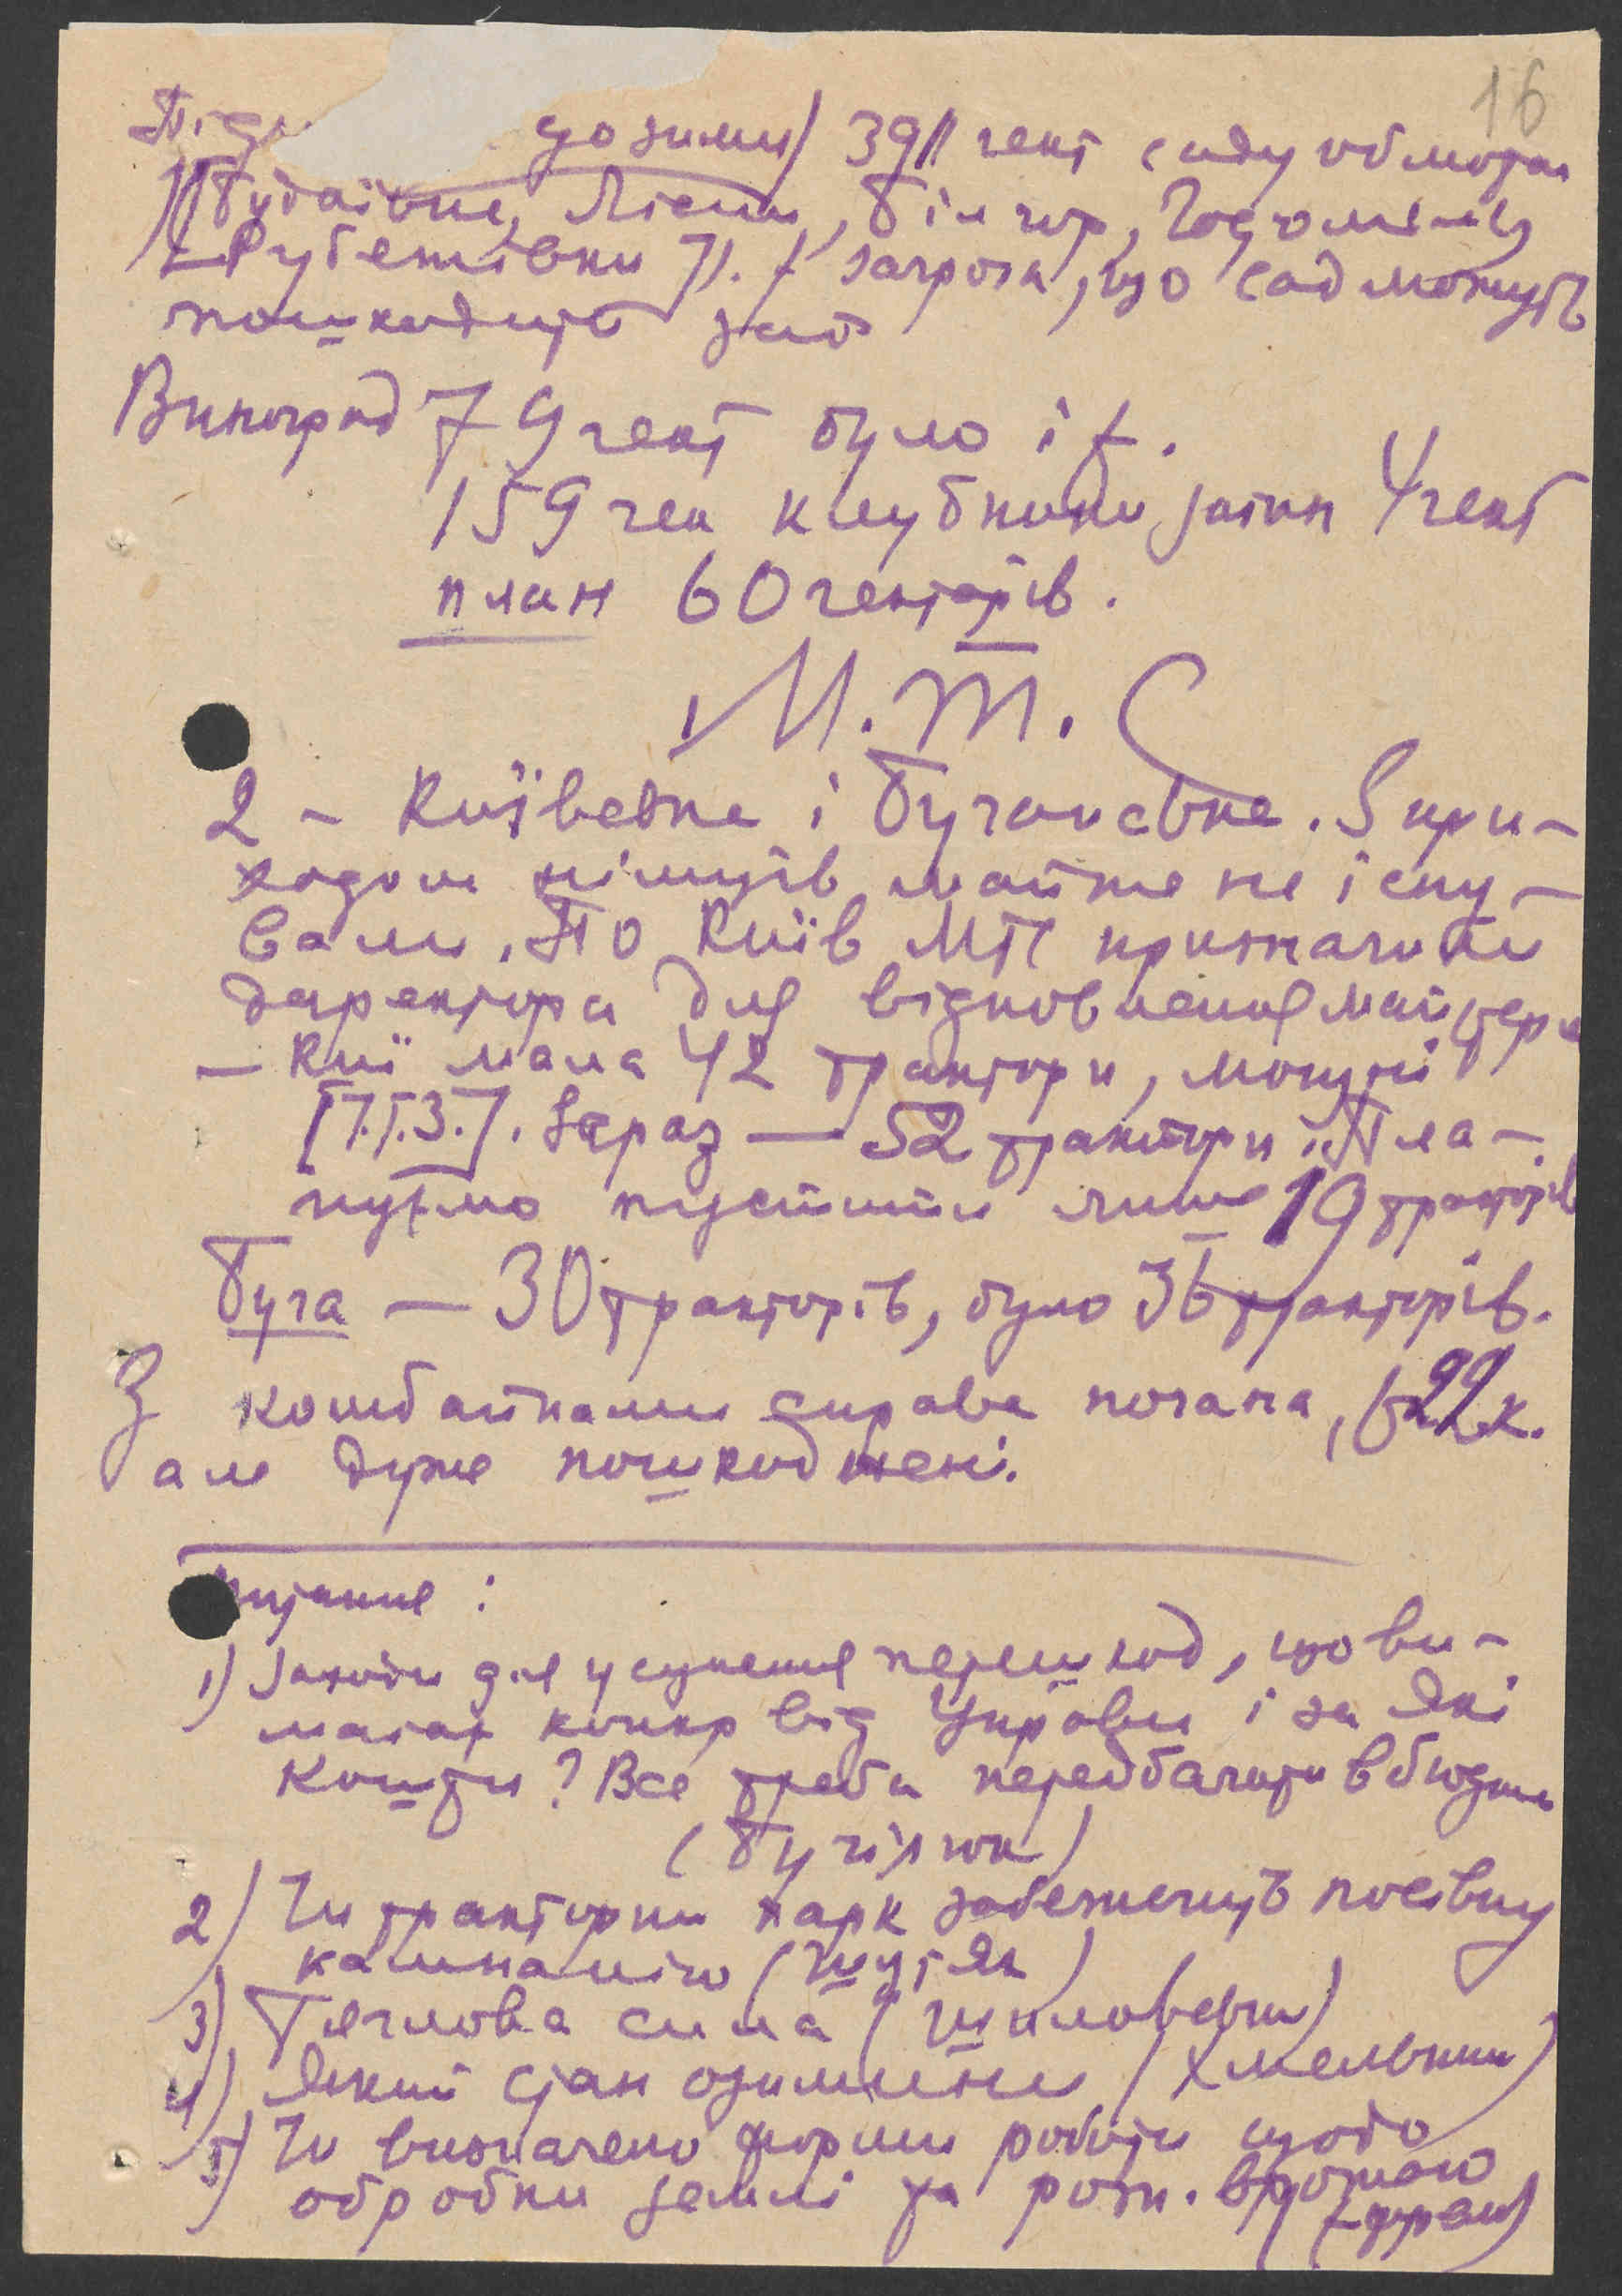 16
до зими) 391 гект саду обмотан
Будаївце, Лісни, Білгор,
Рубежівки]. Є загроза, що сад можуть
пошкодить зайці
Виноград 79 гект було і є.
159 гек клубники зали 4 гект
план 60 гектарів.
М.Т.С
2 – Київське і Бучанське. З при-
ходом німців майже не існу-
вали. По Київ МТС призначили
директора для відновлення майстере
– Киї мала 42 трактори, могутні
[Г.Т.З.]. Зараз – 52 трактори. Пла-
нуємо пустити лише 19 тракторів
Буча – 30 тракторів, було 36 тракторів.
З комбайнами справа погана, 22 к.
але дуже пошкоджені.
Питання:
1) Заходи для усунення перешкод, що ви-
магає від Управи і за які
кошти? Все треба передбачити в бюджеті
2) Чи тракторни парк забезпечуть посівну
кампанію (Шутяк)
3) Тяглова сила (Шкловськи)
4) Який стан озимини (Хмельники)
5) Чи визначено форми роботи щодо
обробки землі та розп. врожаю